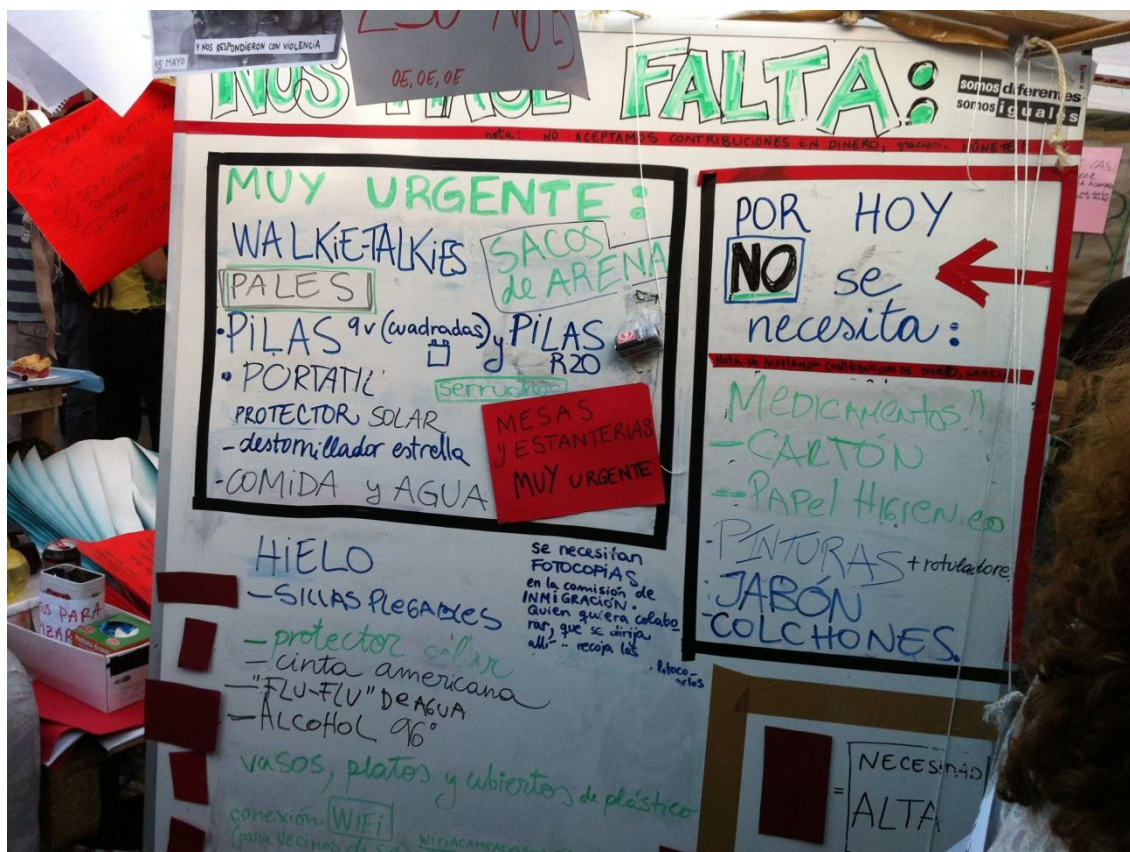 Y NOS RESPONDIERON CON VIOLENCIA
15 MAYO
OE, OE, OE
NOS HACE FALTA:
somos diferentes
somos iguales
nota: NO ACEPTAMOS CONTRIBUCIONES EN DINERO, gracias. ¡ÚNETE!
MUY URGENTE:
WALKIE-TALKIES
SACOS
de ARENA
PALES
·PILAS 9v (cuadradas) y PILAS
R20
· PORTATIL
serruchos
PROTECTOR SOLAR
- destornillador estrella
-COMIDA y AGUA
MESAS
y ESTANTERIAS
MUY URGENTE
POR HOY
NO se
necesita:
Nota NO ACEPTAMOS CONTRIBUCION DE DINERO, GRACIAS
MEDICAMENTOS!!
- CARTÓN
- PAPEL HIGIENICO
-PINTURAS + rotuladore
-JABÓN
-COLCHONES.
HIELO
- SILLAS PLEGABLES
- protector solar
- cinta americana
- "FLU-FLU" DE AGUA
- ALCOHOL 96°
vasos, platos y cubiertos de plástico
conexión WIFI
(para vecinos de
se necesitan
FOTOCOPIAS
en la comisión de
INMIGRACIÓN.
Quien quiera colabo-
rar, que se dirija
allí y recoja los
PARA
= NECESIDAD
ALTA